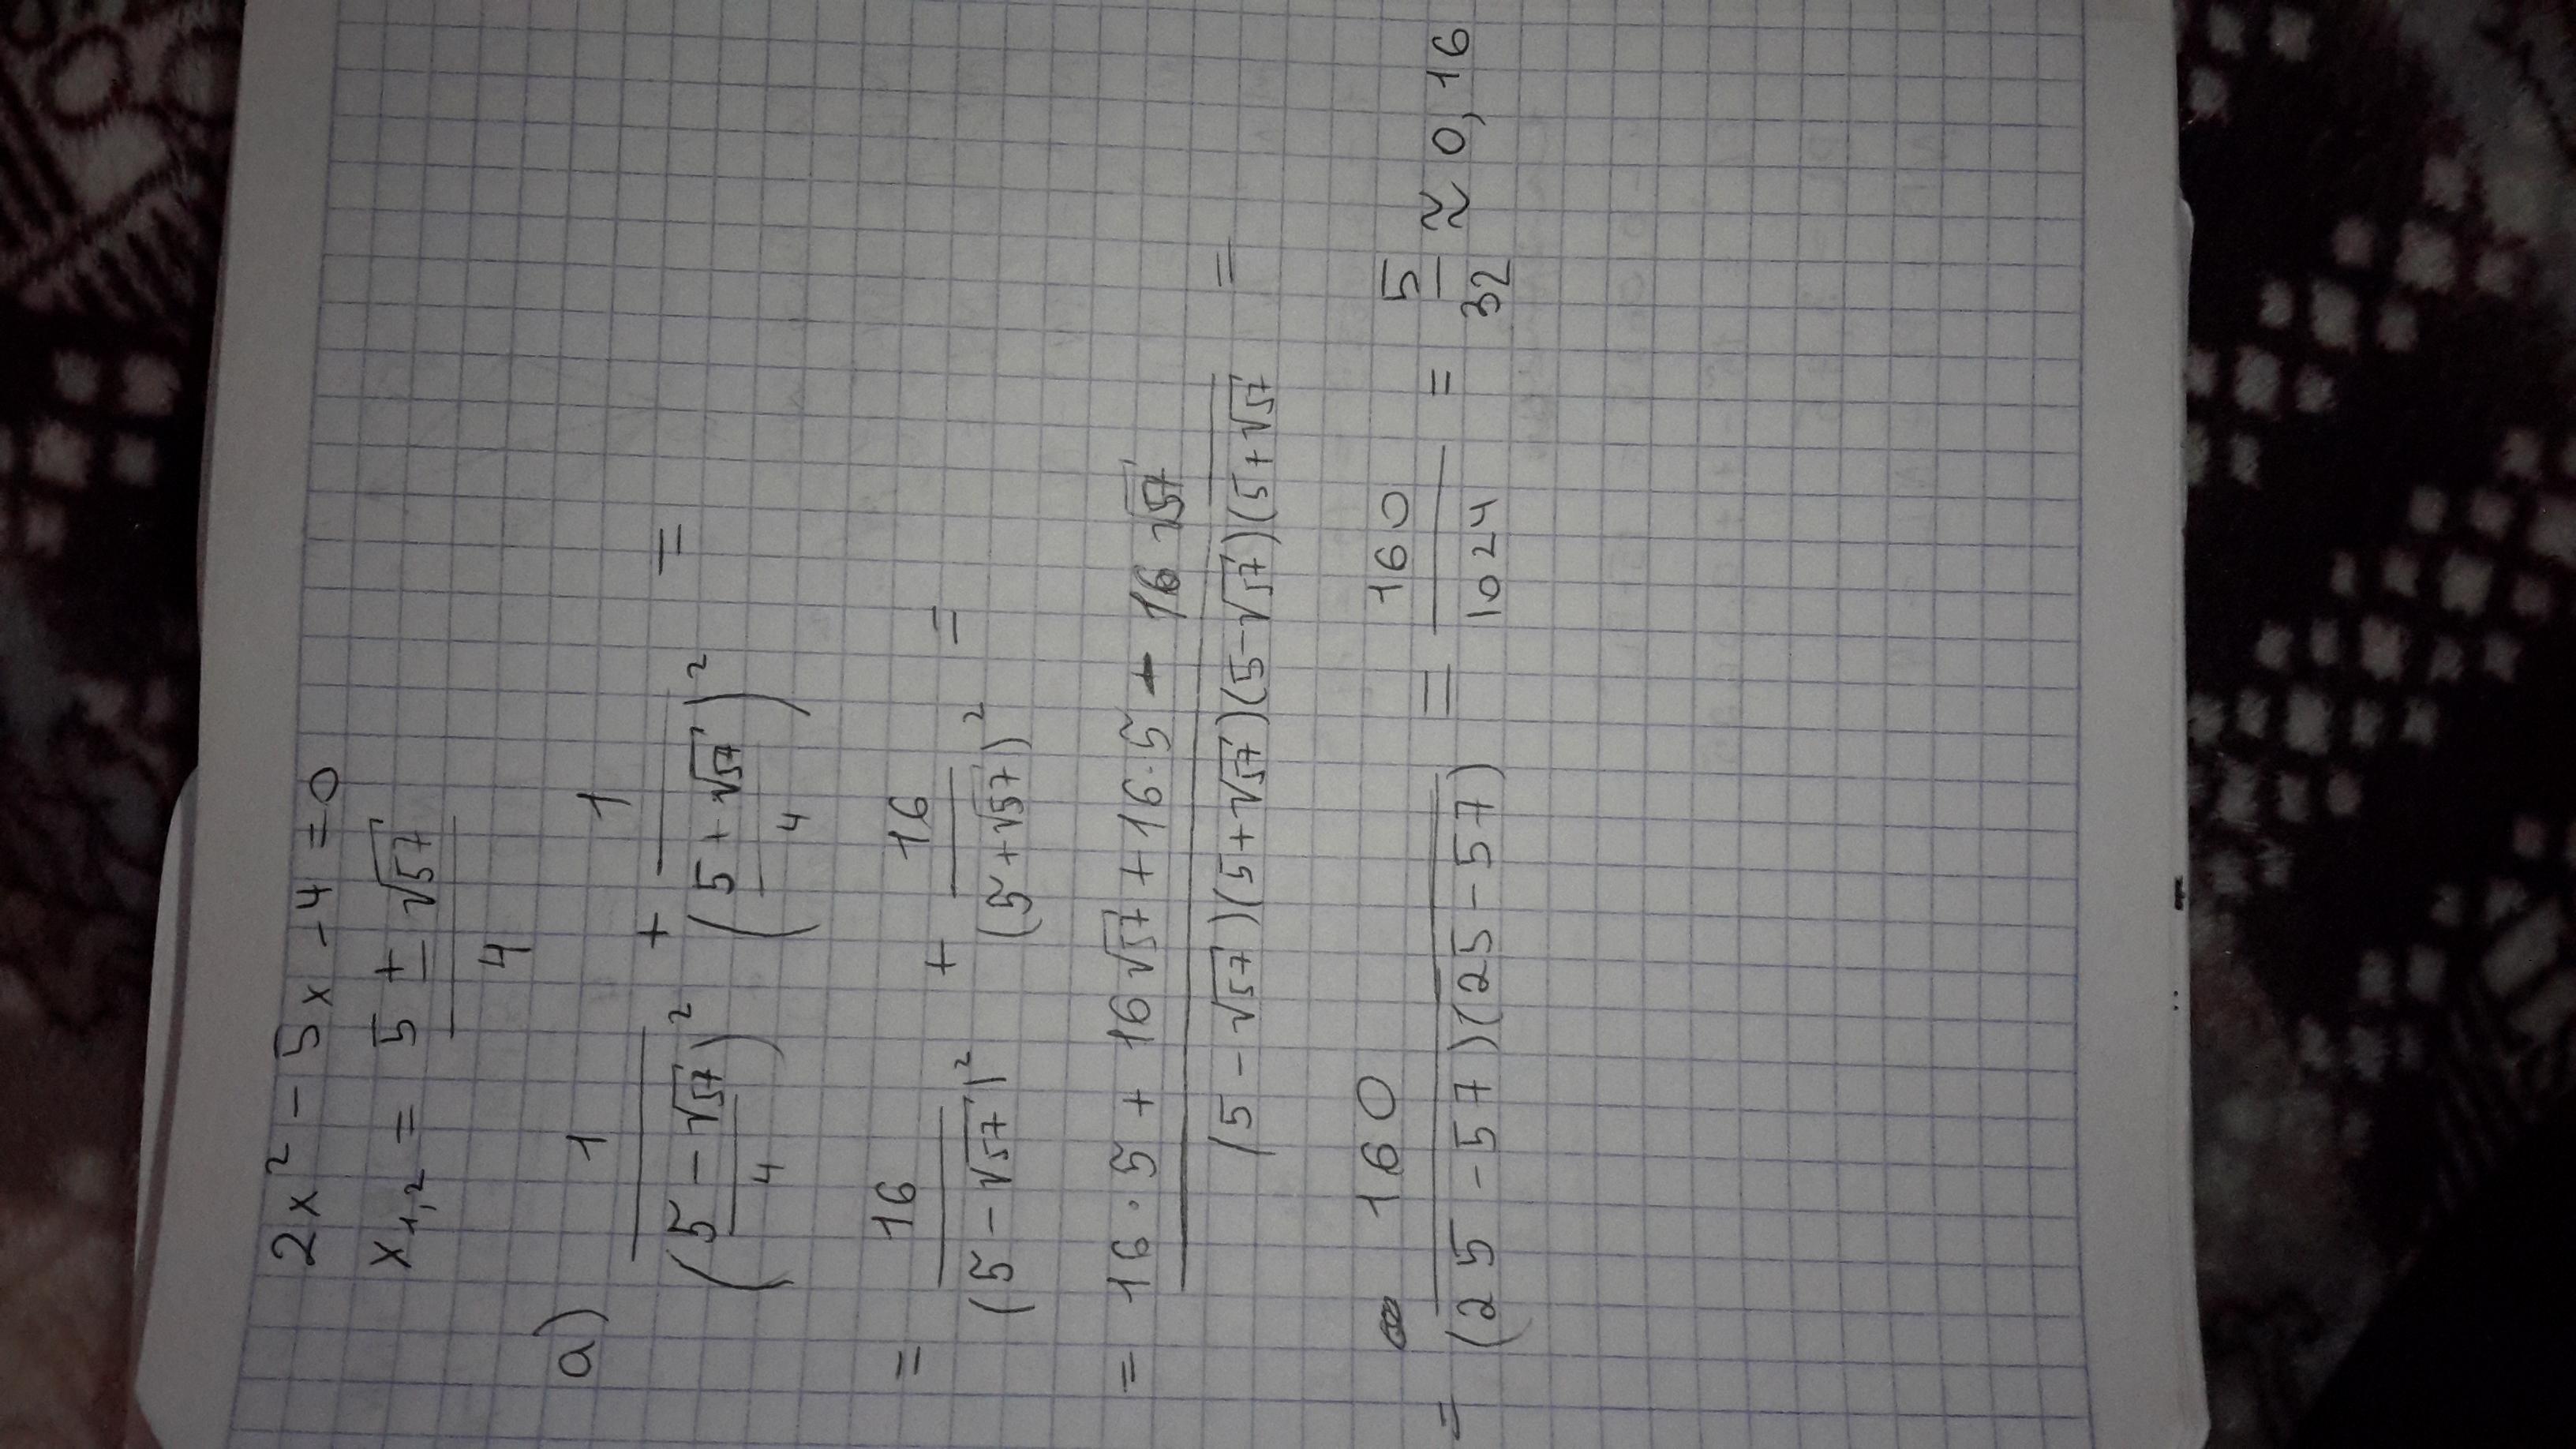 2x² - 5x - 4 = 0
x₁,₂ = (5 ± √57) / 4
a) 1 / ((5 - √57) / 4)² + 1 / ((5 + √57) / 4)² =
= 16 / (5 - √57)² + 16 / (5 + √57)² =
= (16 · 5 + 16√57 + 16 · 5 - 16√57) / (5 - √57)(5 + √57)(5 - √57)(5 + √57 =
= 160 / (25 - 57)(25 - 57) = 160 / 1024 = 5 / 32 ≈ 0,16